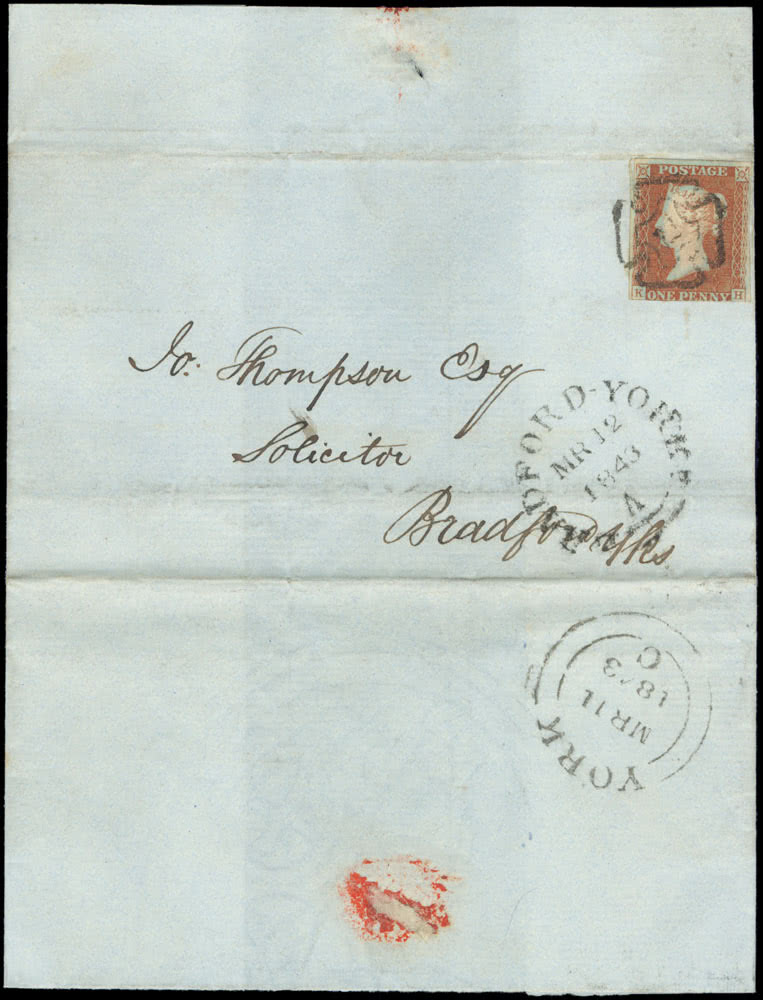 POSTAGE
K ONE PENNY H
Jo. Thompson Esq
Solicitor
Bradford Yks
BRADFORD-YORKS
MR 12
1843
A
YORK
MR 11
1843
C